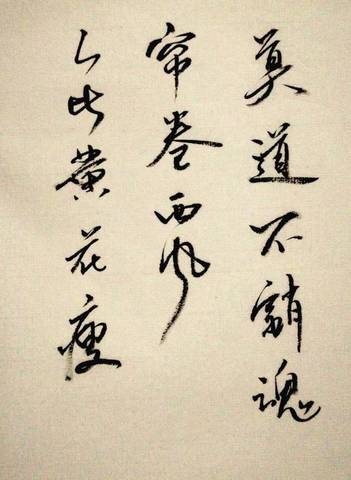 莫道不销魂
帘卷西风
人比黄花瘦